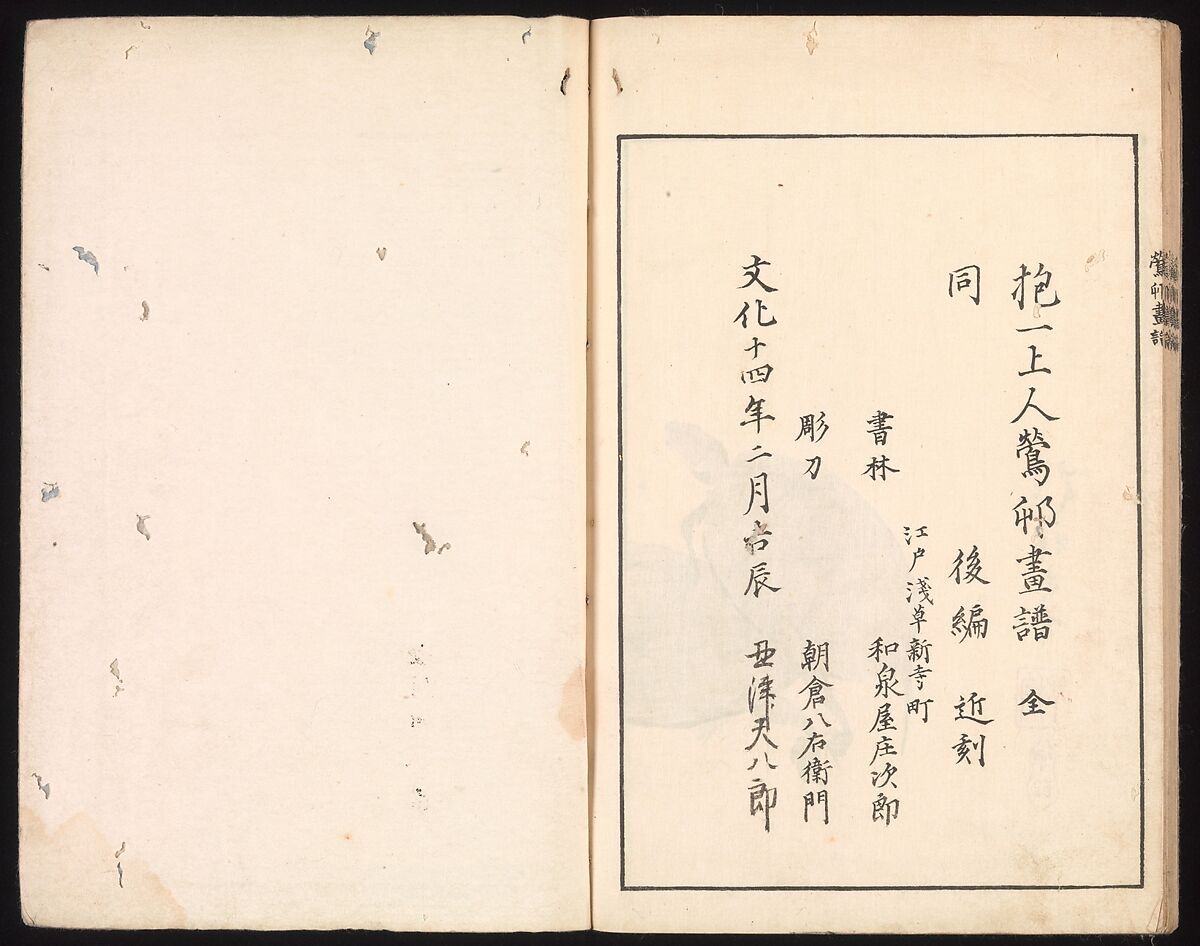 抱一上人鶯邨畫譜 全
同 後編 近刻
江戸淺草新寺町
書林 和泉屋庄次郎
彫刀 朝倉八右衛門
文化十四年二月吉辰
天八郎
鶯邨畫譜